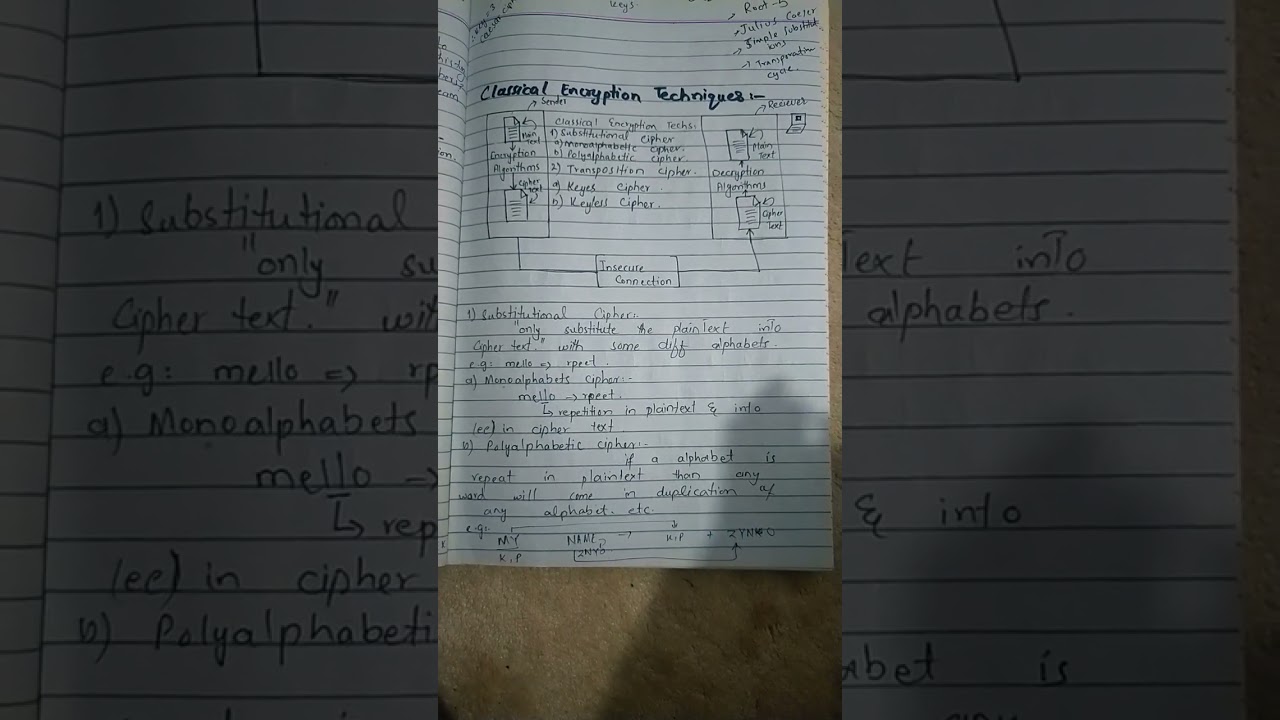 keys.
→ Root-5
→ Julius Caeler
→ Simple Substitut
ions
→ Transporation
cycle.
Classical Encryption Techniques:-
→ Sender
→ Reciever
Main
Text
Encryption
Algorithms
Cipher
Text
Classical Encryption Techs:
1) Substitutional cipher
a) monoalphabetic cipher.
b) Polyalphabetic cipher.
2) Transposition cipher.
a) Keyes cipher.
b) Keyless Cipher.
Main
Text
Decryption
Algorithms
Cipher
Text
Insecure
Connection
1) Substitutional Cipher:-
"only substitute the plainText into
Cipher text." with some diff alphabets.
e.g: mello => rpeet
a) Monoalphabets cipher:-
mello → rpeet.
↳ repetition in plaintext & into
(ee) in cipher text
b) Polyalphabetic cipher:-
if a alphabet is
repeat in plaintext than any
word will come in duplication of
any alphabet. etc.
e.g:-
MY NAME → K,P +
K,P